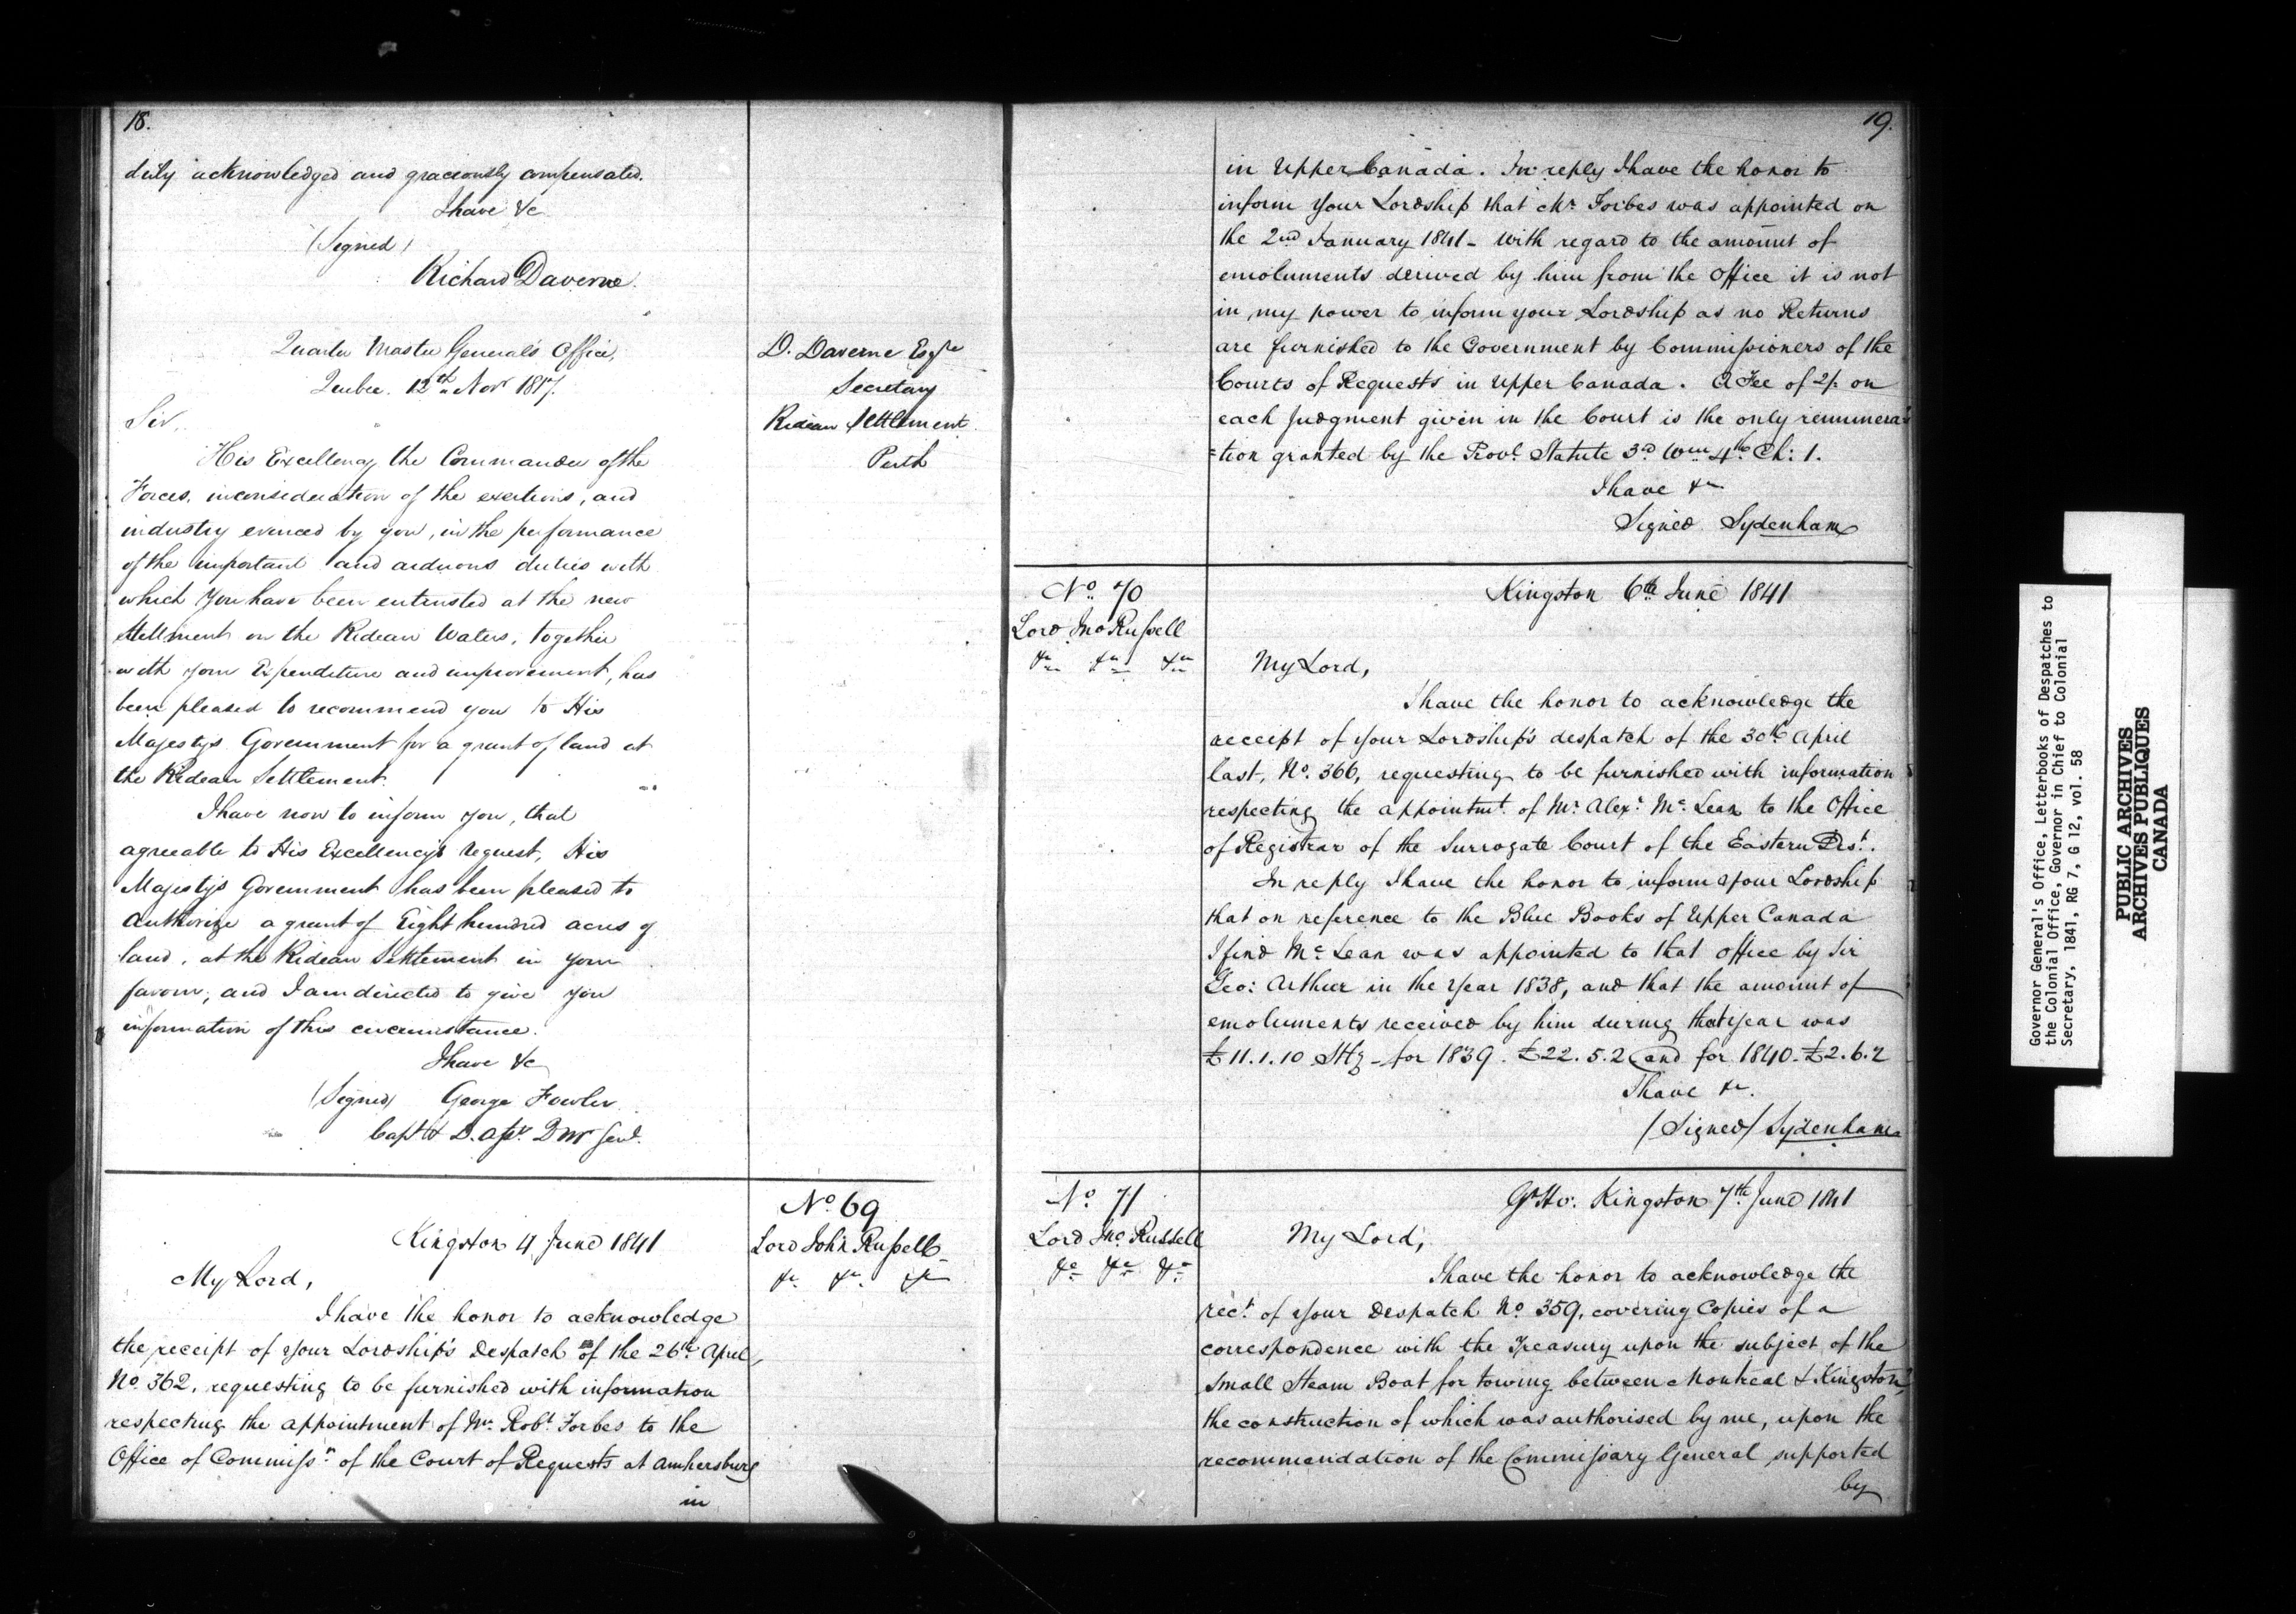 18.
duly acknowledged and graciously compensated.
I have &c
(Signed)
Richard Daverne.
Quarter Master General's Office,
Quebec. 12th Novr 1817.
Sir,
His Excellency the Commander of the
Forces, in consideration of the exertions, and
industry evinced by you, in the performance
of the important and arduous duties with
which you have been entrusted at the new
Settlment on the Ridean Waters, together
with your Expenditure and improvement, has
been pleased to recommend you to His
Majestys Government for a grant of land at
the Ridean Settlement.
I have now to inform you, that
agreeable to His Excellency's request, His
Majestys Government has been pleased to
authorize a grant of Eight hundred acres of
land, at the Ridean Settlement in your
favour, and I am directed to give you
information of this circumstance.
I have &c
(Signed) George Fowler
Capt & D. Asst. Q Mr Genl.
D. Daverne Esqre
Secretary
Ridean Settlement
Perth
No. 69
Lord John Russell
&c. &c. &c
Kingston 4 June 1841
My Lord,
I have the honor to acknowledge
the receipt of your Lordship's Despatch of the 26th April,
No. 362, requesting to be furnished with information
respecting the appointment of Mr. Robt. Forbes to the
Office of Commissr. of the Court of Requests at Amhersburg
in
19.
in Upper Canada. In reply I have the honor to
inform your Lordship that Mr. Forbes was appointed on
the 2nd January 1841 - with regard to the amount of
emoluments derived by him from the office it is not
in my power to inform your Lordship as no Returns
are furnished to the Government by Commissioners of the
Courts of Requests in Upper Canada. A Fee of 2/- on
each Judgment given in the Court is the only remunera=
=tion granted by the Provl. Statute 3rd Wm 4th Ch: 1.
I have &c
Signed Sydenham
No. 70
Lord Jno Russell
&c &c &c
Kingston 6th June 1841
My Lord,
I have the honor to acknowledge the
receipt of your Lordship's despatch of the 30th April
last, No. 366, requesting to be furnished with information
respecting the appointmt. of Mr. Alexr. Mc.Lean to the Office
of Registrar of the Surrogate Court of the Eastern Dist.
In reply I have the honor to inform your Lordship
that on reference to the Blue Books of Upper Canada
I find Mc.Lean was appointed to that office by Sir
Geo: Arthur in the year 1838, and that the amount of
emoluments received by him during that year was
£11.1.10 Stg - for 1839. £22.5.2 and for 1840. £2.6.2
I have &c.
(Signed) Sydenham
No. 71
Lord Jno. Russell
&c &c &c
Gt Ho. Kingston 7th June 1841
My Lord,
I have the honor to acknowledge the
rect. of your Despatch No. 359, covering Copies of a
correspondence with the Treasury upon the subject of the
small Steam Boat for towing between Montreal & Kingston,
the construction of which was authorised by me, upon the
recommendation of the Commissary General supported
by
Governor General's Office, Letterbooks of Despatches to
the Colonial Office, Governor in Chief to Colonial
Secretary, 1841, RG 7, G 12, vol. 58
PUBLIC ARCHIVES
ARCHIVES PUBLIQUES
CANADA